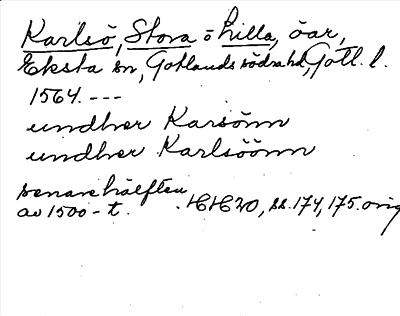 Karlsö, Stora o Lilla, öar,
Eksta sn, Gotlands södra hd, Gotl. l.
1564. ---
undher Karsönn
undher Karlsöönn
senare hälften
av 1500-t. HH20, ss. 174, 175. orig